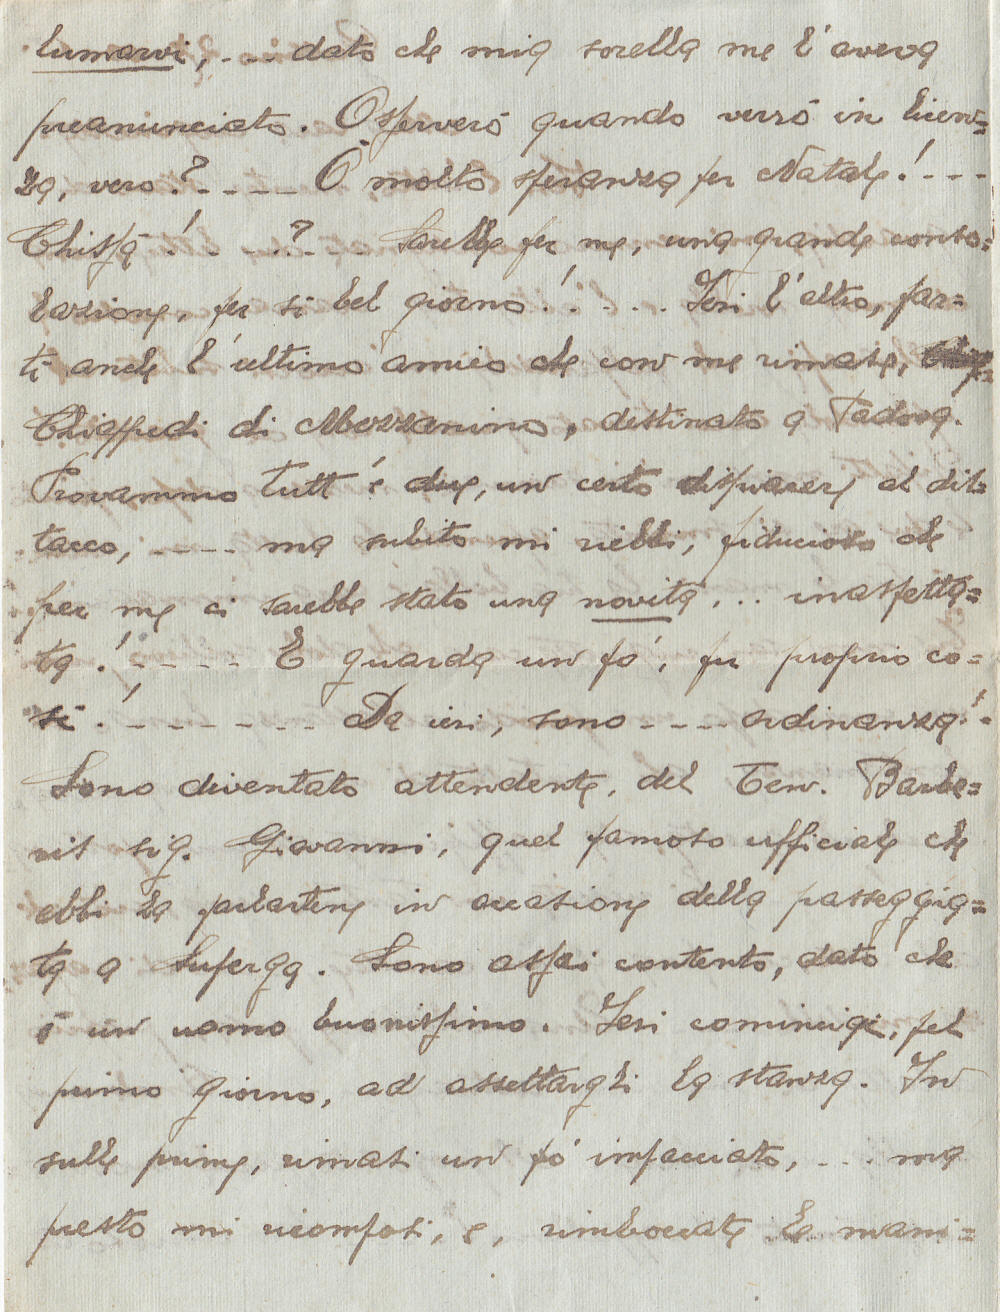 lumarvi, ... dato che mia sorella me l'aveva
preanunciato. Osserverò quando verrò in licen=
za, vero?---- Ò molto speranza per Natale!---
Chissà!.. -..?... Sarebbe per me, una grande conso=
lazione, per sì bel giorno!..... Ieri l'altro, par=
tì anche l'ultimo amico che con me rimase,
Chiappedi di Mezzanino, destinato a Padova.
Provammo tutt'e due, un certo dispiacere al dis=
tacco, ---- ma subito mi riebbi, fiducioso che
per me ci sarebbe stato una novità, .. inaspetta=
ta!----- E guarda un pó, fu proprio co=
sì!------- Da ieri, sono ---- ordinanza!-
Sono diventato attendente, del Ten. Barbe=
ris sig. Giovanni, quel famoso ufficiale che
ebbi a parlartene in occasione della passeggia=
ta a Superga. Sono assai contento, dato che
è un uomo buonissimo. Ieri cominciai, pel
primo giorno, ad assettargli la stanza. In
sulle prime, rimasi un pó impacciato, ... ma
presto mi ricomposi, e, rimboccate le mani=